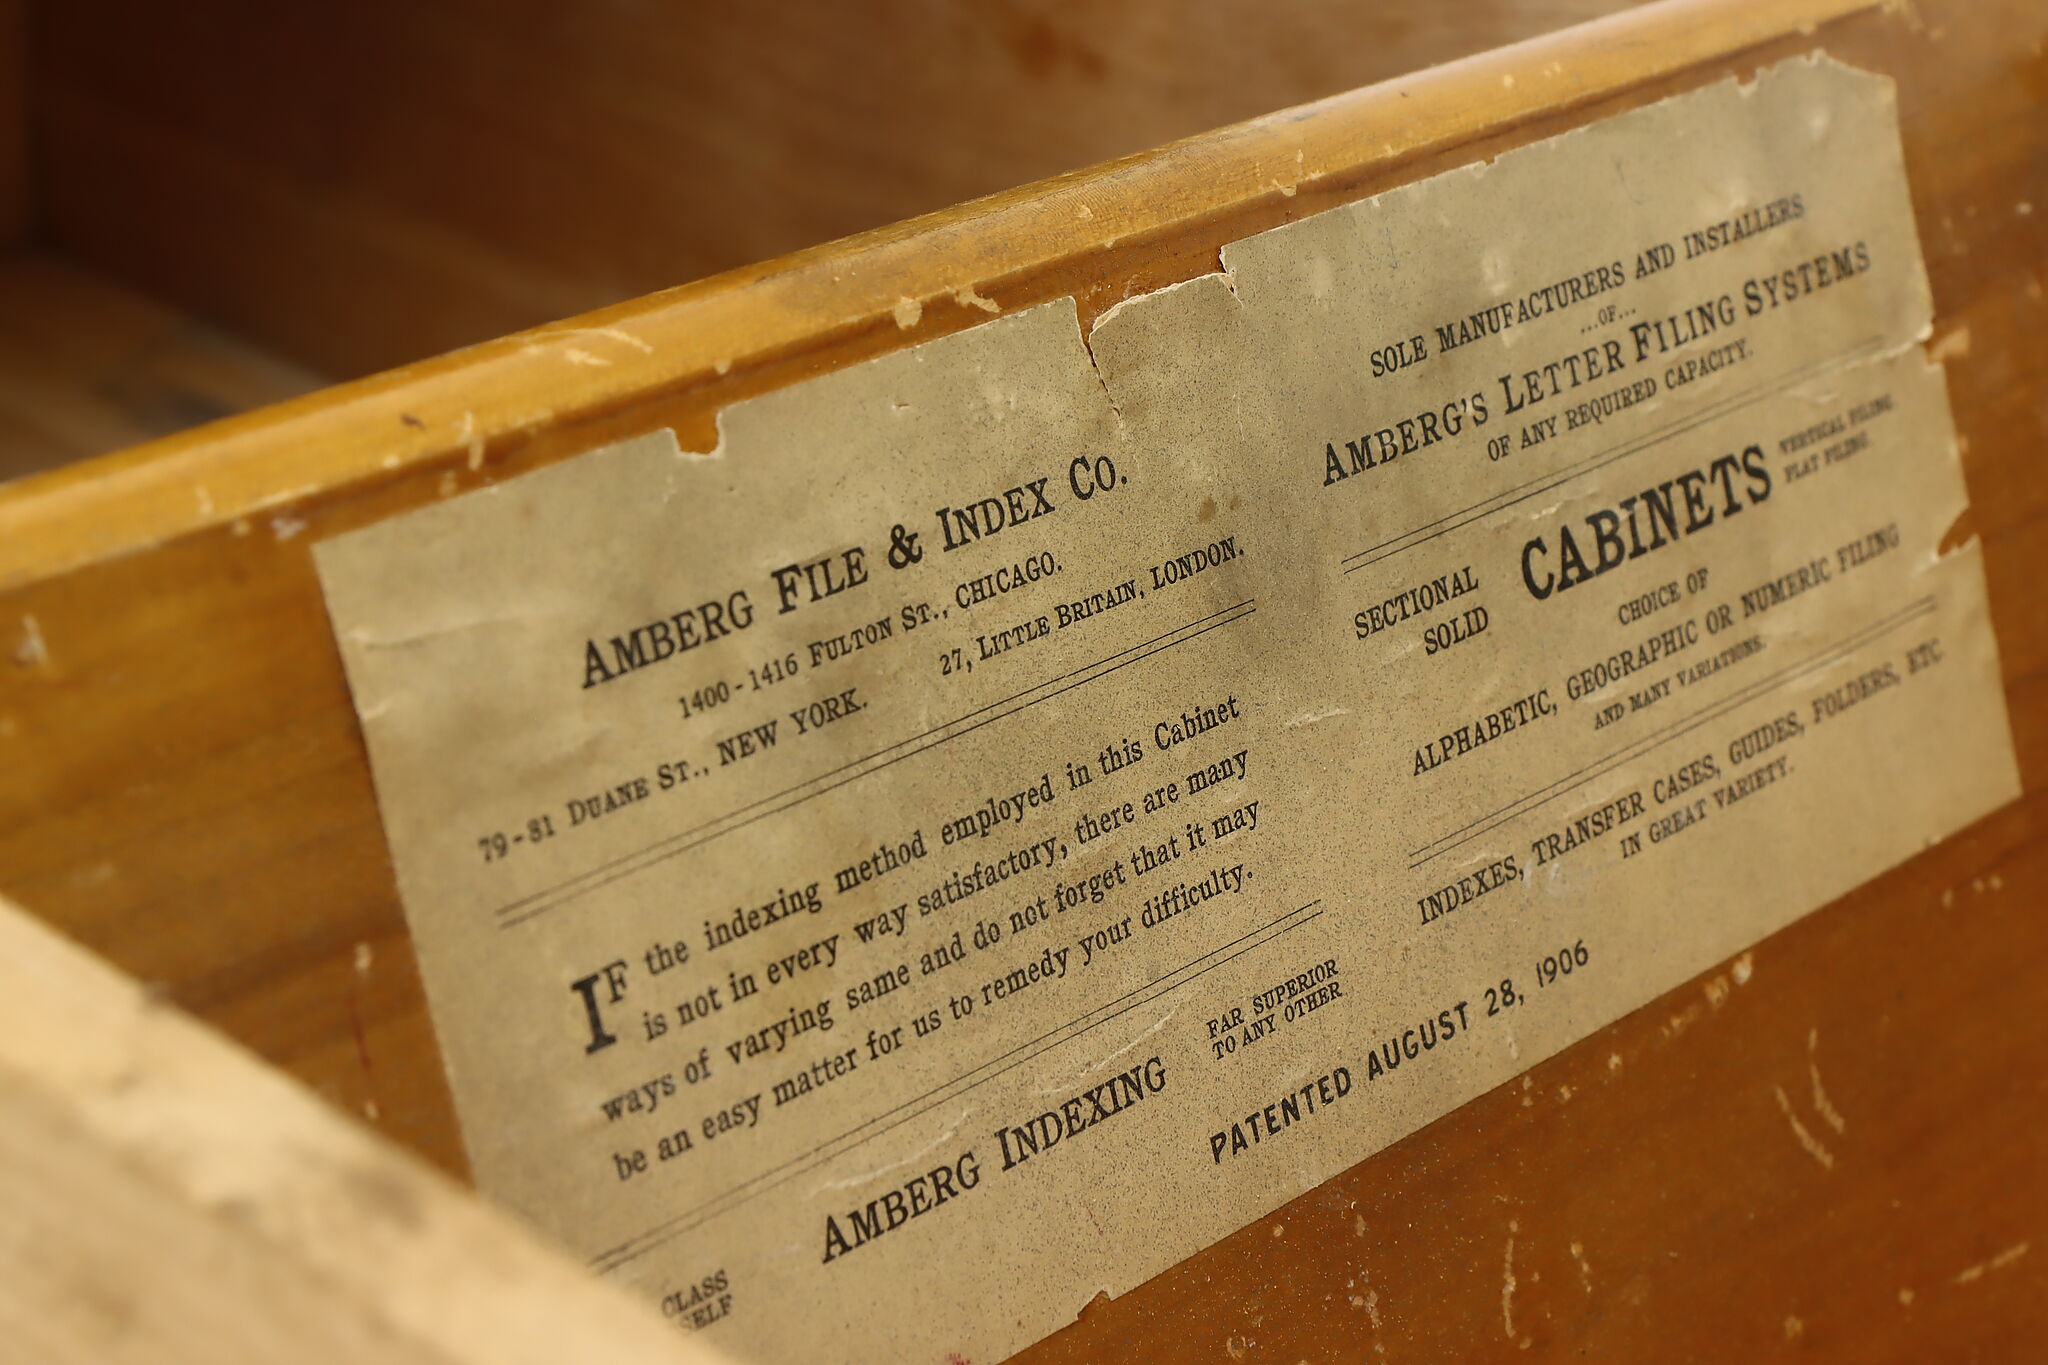 AMBERG FILE & INDEX CO.
1400-1416 FULTON ST., CHICAGO.
79-81 DUANE ST., NEW YORK. 27, LITTLE BRITAIN, LONDON.
IF the indexing method employed in this Cabinet
is not in every way satisfactory, there are many
ways of varying same and do not forget that it may
be an easy matter for us to remedy your difficulty.
CLASS
SELF
AMBERG INDEXING
FAR SUPERIOR
TO ANY OTHER
SOLE MANUFACTURERS AND INSTALLERS
...OF...
AMBERG'S LETTER FILING SYSTEMS
OF ANY REQUIRED CAPACITY.
SECTIONAL
SOLID
CABINETS
VERTICAL FILING
FLAT FILING
CHOICE OF
ALPHABETIC, GEOGRAPHIC OR NUMERIC FILING
AND MANY VARIATIONS.
INDEXES, TRANSFER CASES, GUIDES, FOLDERS, ETC
IN GREAT VARIETY.
PATENTED AUGUST 28, 1906